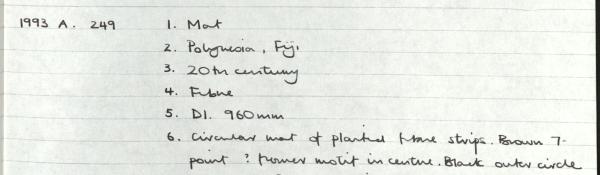 1993 A. 249 1. Mat
2. Polynesia, Fiji
3. 20th century
4. Fibre
5. DI. 960mm
6. Circular mat of plaited fibre strips. Brown 7-
point ? flower motif in centre. Black outer circle